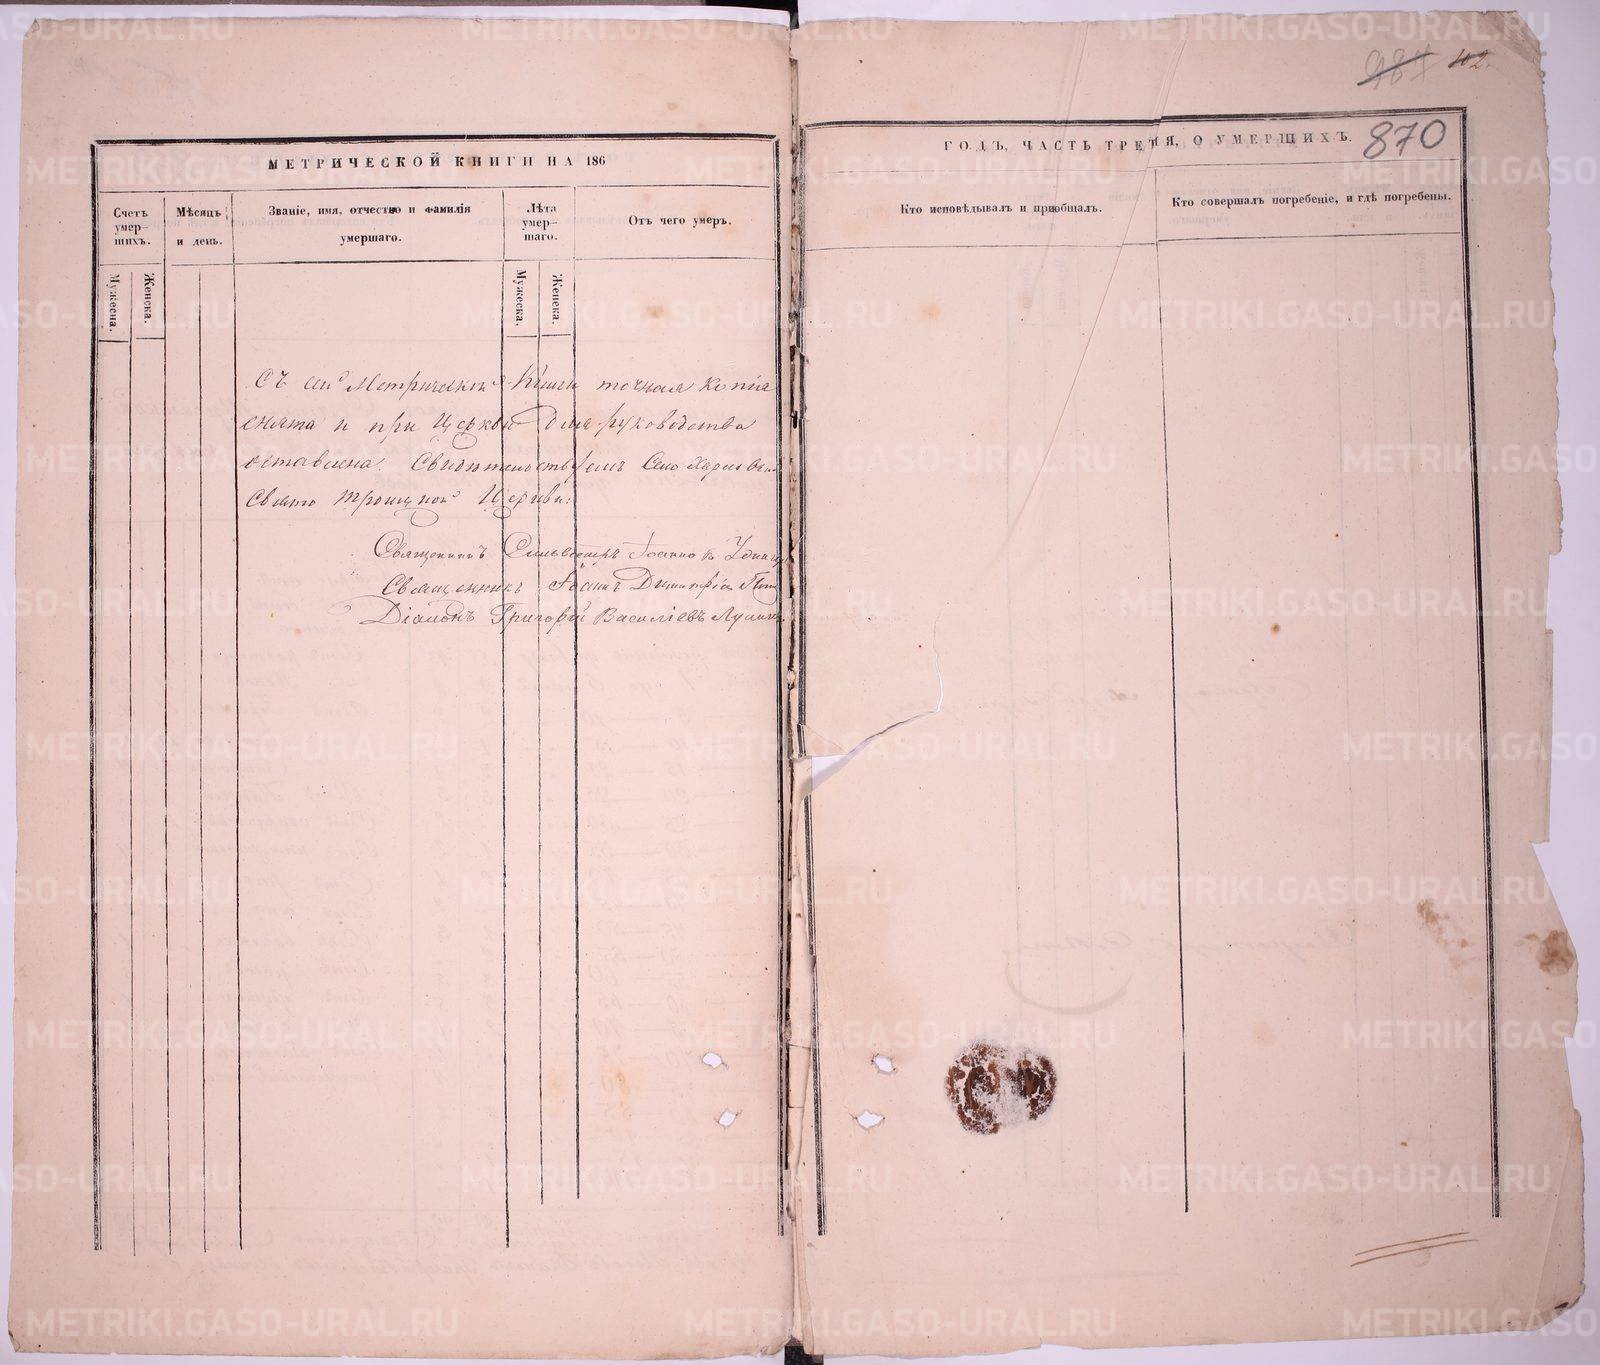 МЕТРИЧЕСКОЙ КНИГИ НА 186
Счетъ умер-шихъ.
Мѣсяцъ и день.
Званіе, имя, отчество и фамилія умершаго.
Лѣта умер-шаго.
Отъ чего умеръ.
Мужеска.
Женска.
Мужеска.
Женска.
Съ сей Метрической Книги точная Копія
снята и при Церкви для руководства
оставлена. Свидѣтельствуемъ Село
Свято Троицкой Церкви:
Священникъ Сильвестръ Іоанновъ
Священникъ Іоаннъ Димитріевъ
Діаконъ Григорій Васильевъ
402.
ГОДЪ, ЧАСТЬ ТРЕТІЯ, О УМЕРШИХЪ.
870
Кто исповѣдывалъ и пріобщалъ.
Кто совершалъ погребеніе, и гдѣ погребены.
METRIKI.GASO-URAL.RU